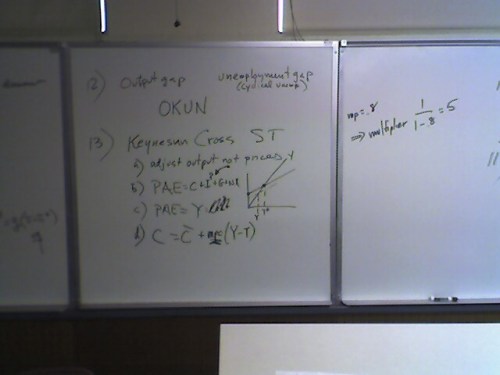 12) Output gap unemployment gap
(cyclical unemp)
OKUN
13) Keynesian Cross ST
a) adjust output not prices
b) PAE = C + I + G + NX
c) PAE = Y
d) C = C̄ + mpc (Y-T)
Y
mp = .8
⇒ multiplier 1/1-.8 = 5